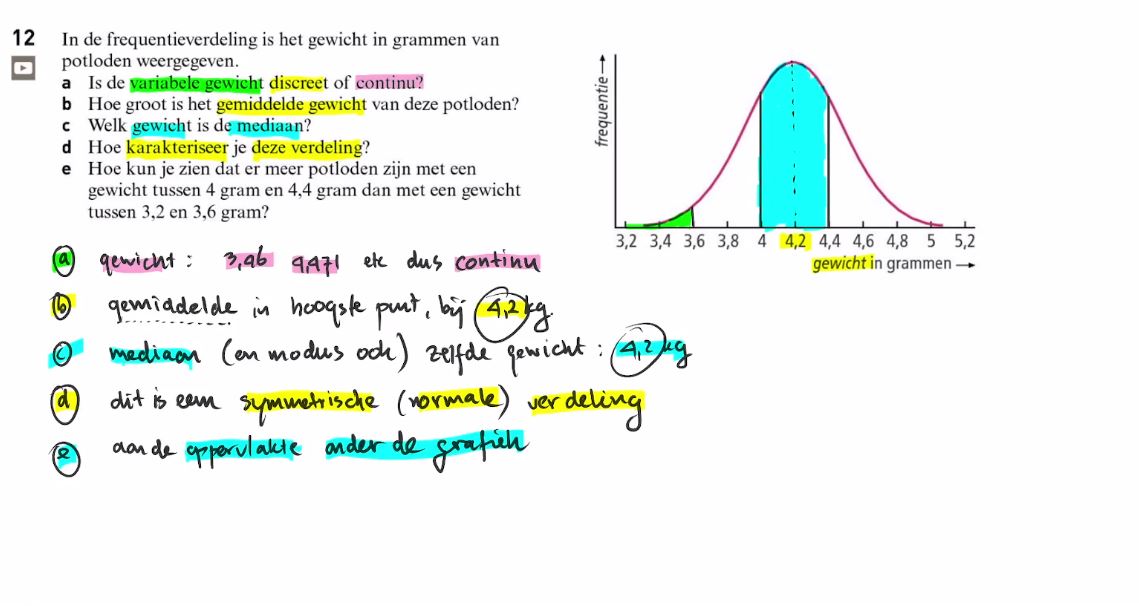 12 In de frequentieverdeling is het gewicht in grammen van
potloden weergegeven.
a Is de variabele gewicht discreet of continu?
b Hoe groot is het gemiddelde gewicht van deze potloden?
c Welk gewicht is de mediaan?
d Hoe karakteriseer je deze verdeling?
e Hoe kun je zien dat er meer potloden zijn met een
gewicht tussen 4 gram en 4,4 gram dan met een gewicht
tussen 3,2 en 3,6 gram?
frequentie
3,2 3,4 3,6 3,8 4 4,2 4,4 4,6 4,8 5 5,2
gewicht in grammen
a gewicht : 3,96 4,471 etc dus continu
b gemiddelde in hoogste punt, bij 4,2 kg.
c mediaan (en modus ook) zelfde gewicht : 4,2 kg
d dit is een symmetrische (normale) verdeling
e aan de oppervlakte onder de grafiek